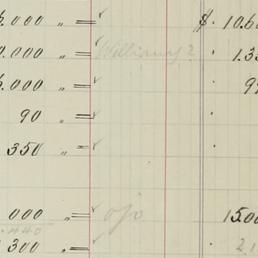 .000 " = $ 10.6
.000 " = Williams? " 1.3
.000 " = " 9
90 " =
350 " =
000 " = ojo 15.00
300 " = 21